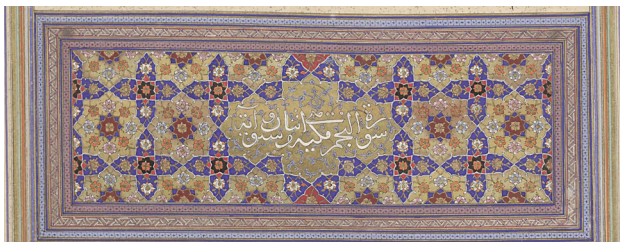 سورة النجم مكية اثنان وستون آية